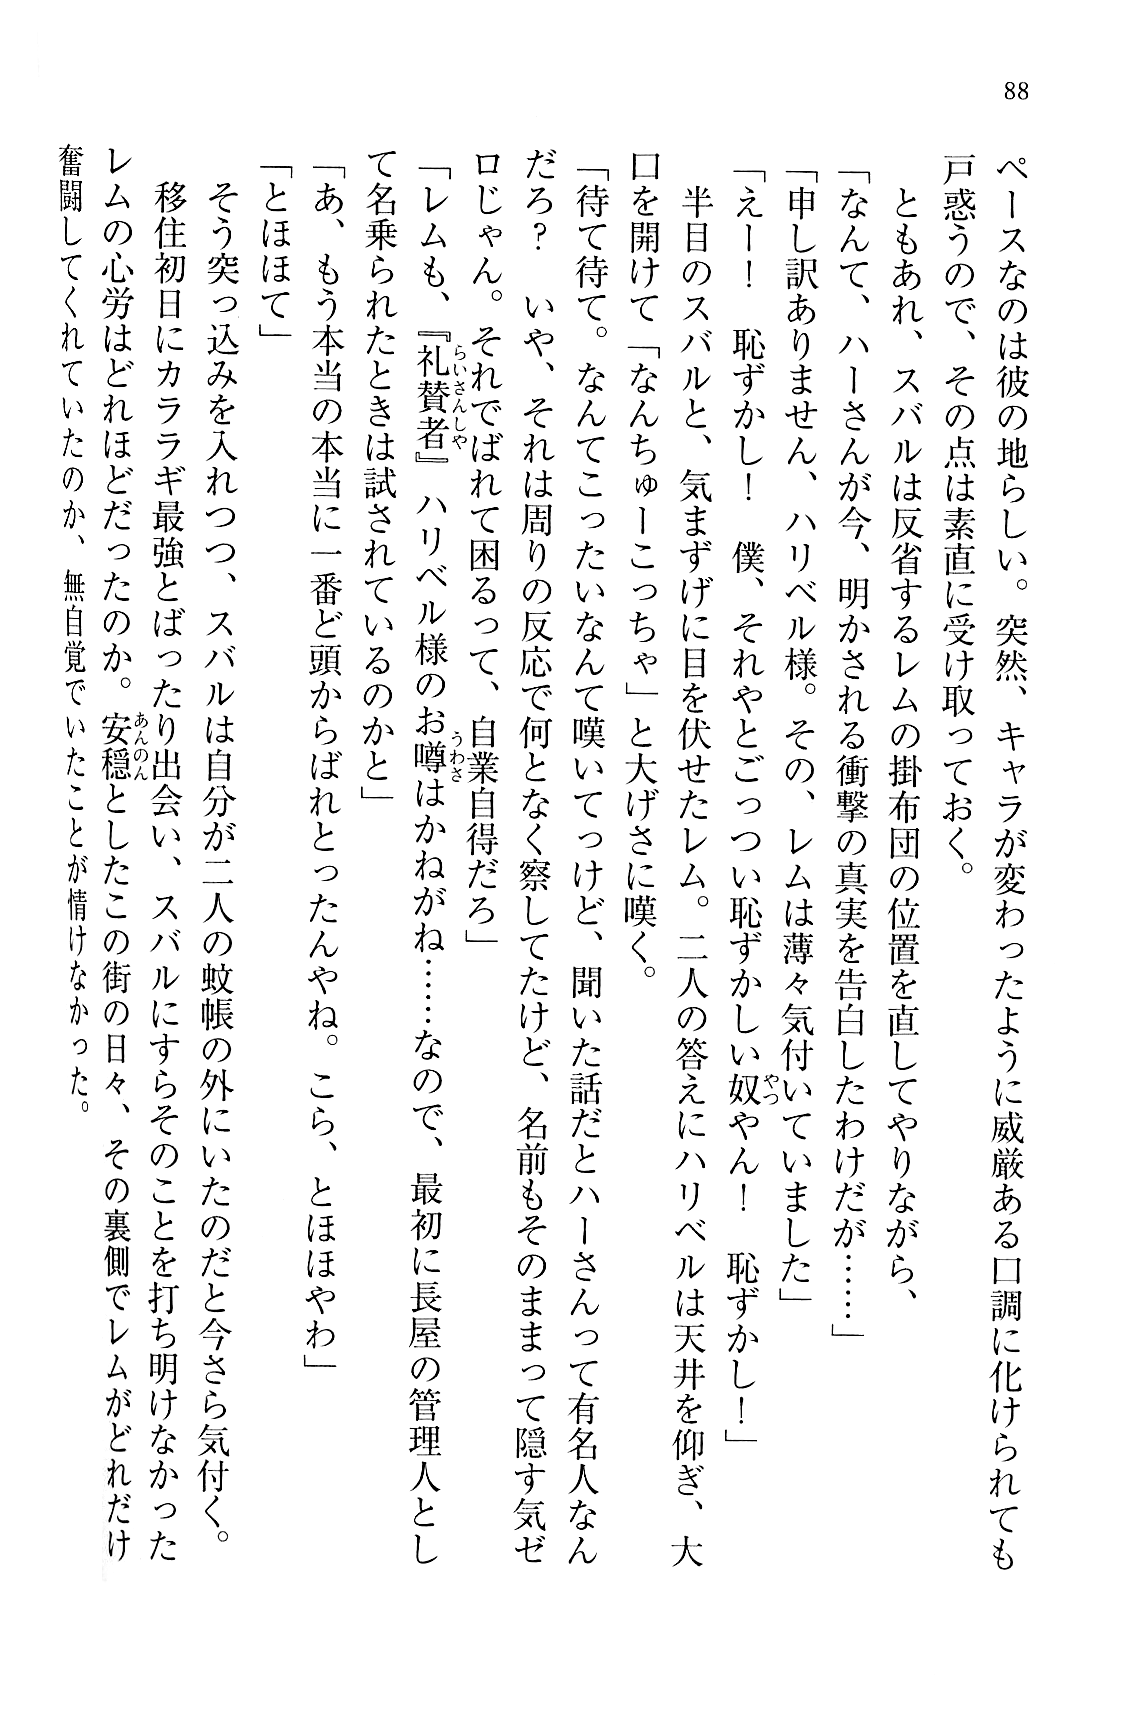 88
ペースなのは彼の地らしい。突然、キャラが変わったように威厳ある口調に化けられても
戸惑うので、その点は素直に受け取っておく。
　ともあれ、スバルは反省するレムの掛布団の位置を直してやりながら、
「なんて、ハーさんが今、明かされる衝撃の真実を告白したわけだが……」
「申し訳ありません、ハリベル様。その、レムは薄々気付いていました」
「えー！　恥ずかし！　僕、それやとごっつい恥ずかしい奴やん！　恥ずかし！」
　半目のスバルと、気まずげに目を伏せたレム。二人の答えにハリベルは天井を仰ぎ、大
口を開けて「なんちゅーこっちゃ」と大げさに嘆く。
「待て待て。なんてこったいなんて嘆いてっけど、聞いた話だとハーさんって有名人なん
だろ？　いや、それは周りの反応で何となく察してたけど、名前もそのままって隠す気ゼ
ロじゃん。それでばれて困るって、自業自得だろ」
「レムも、『礼賛者』ハリベル様のお噂はかねがね……なので、最初に長屋の管理人とし
て名乗られたときは試されているのかと」
「あ、もう本当の本当に一番ど頭からばれとったんやね。こら、とほほやわ」
「とほほて」
　そう突っ込みを入れつつ、スバルは自分が二人の蚊帳の外にいたのだと今さら気付く。
　移住初日にカララギ最強とばったり出会い、スバルにすらそのことを打ち明けなかった
レムの心労はどれほどだったのか。安穏としたこの街の日々、その裏側でレムがどれだけ
奮闘してくれていたのか、無自覚でいたことが情けなかった。
らいさんしゃ
うわさ
やつ
あんのん